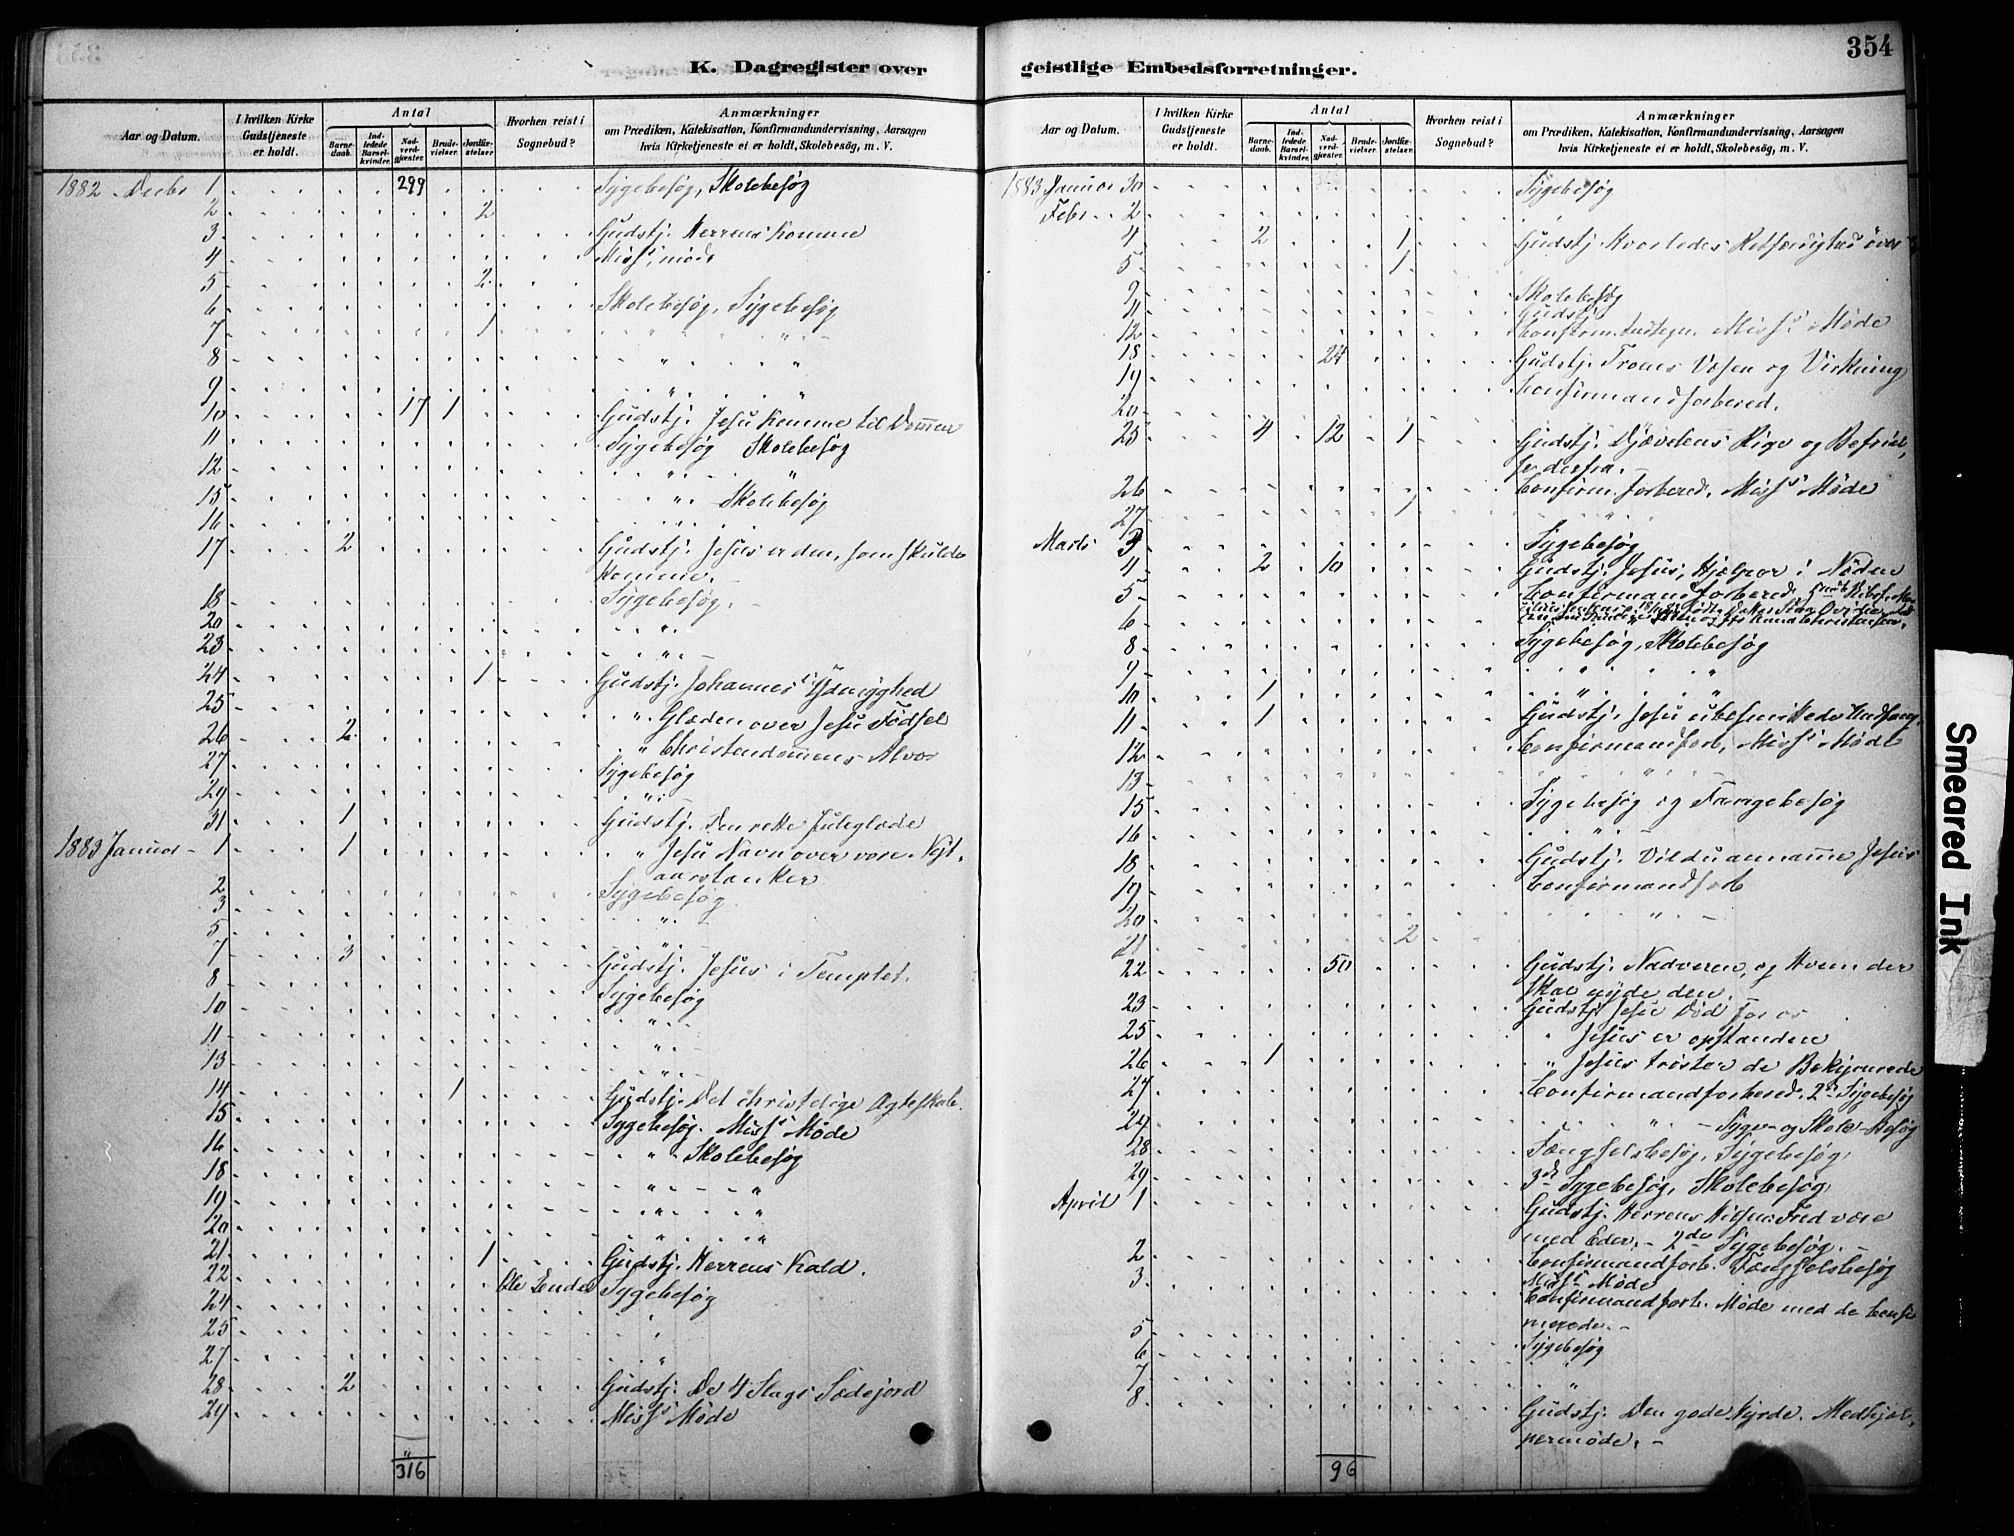 354
K. Dagregister over geistlige Embedsforretninger.
Aar og Datum. I hvilken Kirke Gudstjeneste er holdt. Antal Barnedaab. Indledede Barselkvinder. Nadverdgjæster. Brudevielser. Jordfæstelser. Hvorhen reist i Sognebud? Anmærkninger om Prædiken, Katekisation, Konfirmandundervisning, Aarsagen hvis Kirketjeneste ei er holdt, Skolebesøg, m. V.
1882 Decbr 1 299 Sygebesøg, Skolebesøg
2 2
3 Gudstj. Herrens Komme
4 Miss. møde
5 2
6 Skolebesøg, Sygebesøg
7 1 " "
8 " "
9 " "
10 17 1 Gudstj. Jesu Komme til Dommen
11 Sygebesøg Skolebesøg
12 " "
15 " Skolebesøg
16
17 2 Gudstj. Jesus er den, som skulde
Komme.
18 Sygebesøg.
20 "
23 "
24 1 Gudstj. Johannes' Ydmyghed
25 " Glæden over Jesu Fødsel
26 2 " Christendommens Alvor
27 Sygebesøg
29 "
31 1 Gudstj. Den rette Juleglæde
1883 Januar 1 1 " Jesu Navn over vore Nyt-
aarstanker
2 Sygebesøg
3 "
5 "
7 3 Gudstj. Jesus i Templet.
8 Sygebesøg
10 "
11 "
13 "
14 1 Gudstj. Det christelige Ægteskab.
15 Sygebesøg. Miss's Møde
16 " Skolebesøg
18 " "
19 " "
20 " "
21 1 Gudstj. Herrens Kald.
22 Sygebesøg
24
25 "
27 "
28 2 Gudstj. De 4 Slags Sædejord
29 Miss's Møde
316
Aar og Datum. I hvilken Kirke Gudstjeneste er holdt. Antal Barnedaab. Indledede Barselkvinder. Nadverdgjæster. Brudevielser. Jordfæstelser. Hvorhen reist i Sognebud? Anmærkninger om Prædiken, Katekisation, Konfirmandundervisning, Aarsagen hvis Kirketjeneste ei er holdt, Skolebesøg, m. V.
1883 Januar 30 Sygebesøg
Febr. 2
4 2 1 Gudstj. Hvorledes Retfærdighed
5 1
9 Skolebesøg
11 Gudstj.
12 Miss's Møde
18 24 Gudstj. Troens Væsen og Virkning
19 Confirmandforbered.
20
25 4 12 1 Gudstj. Djævelens Rige og Befriel-
se derfra.
26 Confirm. forbered. Miss's Møde
27 1 "
Marts 3 Sygebesøg
4 2 10 Gudstj. Jesus, Hjælper i Nøden
5 Confirmandforbered.
6
8 Sygebesøg, Skolebesøg
9 " "
10 1 " "
11 1 Gudstj. Jesu
12 Confirmandforb. Miss's Møde
13 "
15 Sygebesøg og Fangebesøg
16 "
18 Gudstj. Vil du annamme Jesus
19 Confirmandforb
20 "
21 2
22 50 Gudstj. Nadveren, og Hvem der
skal nyde den.
23 Gudstj. Jesu Død for os
25 " Jesus er opstanden
26 1 " Jesus trøster de Bekymrede
27 Confirmandforbered. 2 Sygebesøg
27 " Syge- og Skole-Besøg
28 Fængselsbesøg, Sygebesøg,
29 3de Sygebesøg, Skolebesøg
April 1 Gudstj. Herrens Hilsen: Fred være
med Eder. - 2de Sygebesøg. -
2 Confirmandforb. Fængselsbesøg
Miss's Møde
3 Confirmandforb. Møde med de Confir-
merede. -
5 Sygebesøg
6 "
7
8 Gudstj. Den gode Hyrde. Medhjæl-
permøde. -
96
Smeared Ink